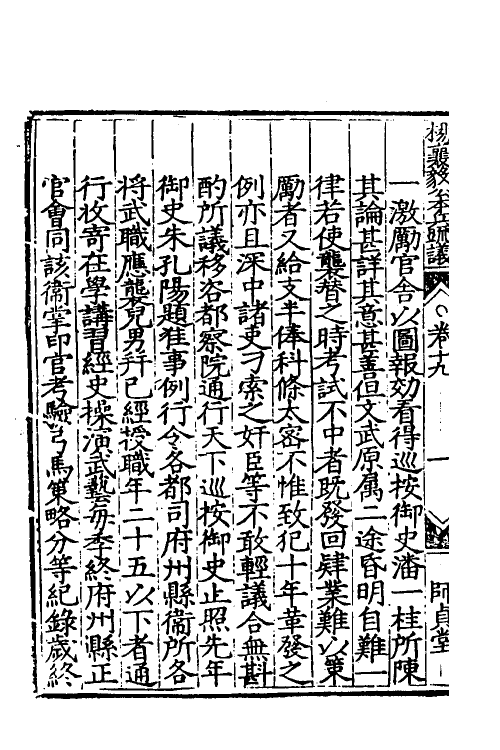 楊襄毅公本兵疏議
卷十九
一
師貞堂
一激勵官舍以圖報効看得巡按御史潘一桂所陳
其論甚詳其意甚善但文武原属二途昏明自難一
律若使襲替之時考試不中者既發回肄業難以策
勵者又給支半俸科條太密不惟致犯十年革發之
例亦且深中諸吏刁索之奸臣等不敢輕議合無斟
酌所議移咨都察院通行天下巡按御史止照先年
御史朱孔陽題准事例行令各都司府州縣衛所各
將武職應襲兒男并已經授職年二十五以下者通
行收寄在學講習經史操演武藝每季終府州縣正
官會同該衛掌印官考驗弓馬策略分等紀錄歲終